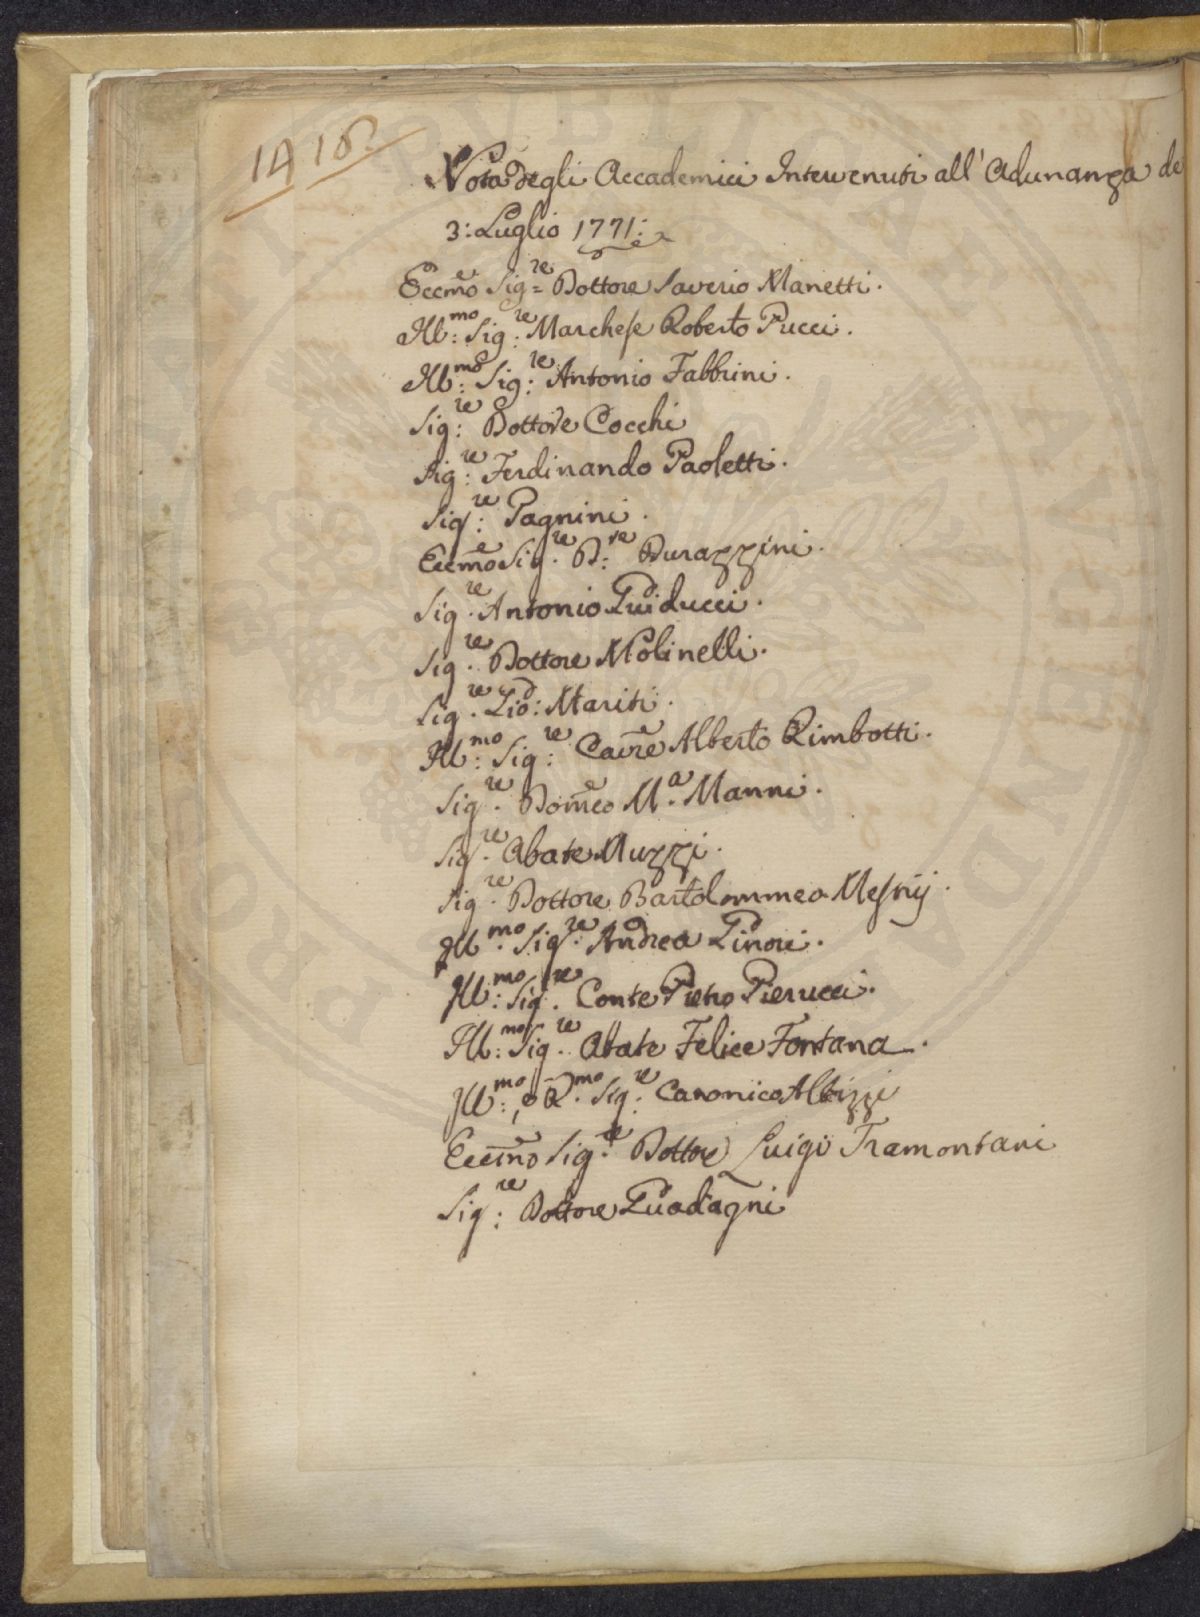 14 18.
Nota degli Accademici Intervenuti all' Adunanza de
3: Luglio 1771:
Eccmo Sig.re Dottore Saverio Manetti.
Ill:mo Sig:re Marchese Roberto Pucci.
Ill:mo Sig:re Antonio Fabbrini.
Sig:re Dottore Cocchi
Sig:re Ferdinando Paoletti.
Sig:re Pagnini.
Eccmo Sig.re D:re Durazzini.
Sig.re Antonio Guiducci.
Sig.re Dottore Molinelli.
Sig.re Gio: Mariti.
Ill:mo Sig:re Cavre Alberto Rimbotti.
Sig.re Domco M.a Manni.
Sig.re Abate Muzzi.
Sig.re Dottore Bartolommeo Mesny.
Ill.mo Sig.re Andrea Ginori.
Ill:mo Sig.re Conte Pietro Pierucci.
Ill:mo Sig.re Abate Felice Fontana.
Ill:mo, e R.mo Sig:re Canonico Albizzi
Eccmo Sig.re Dottore Luigi Tramontani
Sig:re Dottore Guadagni
PUBLICA